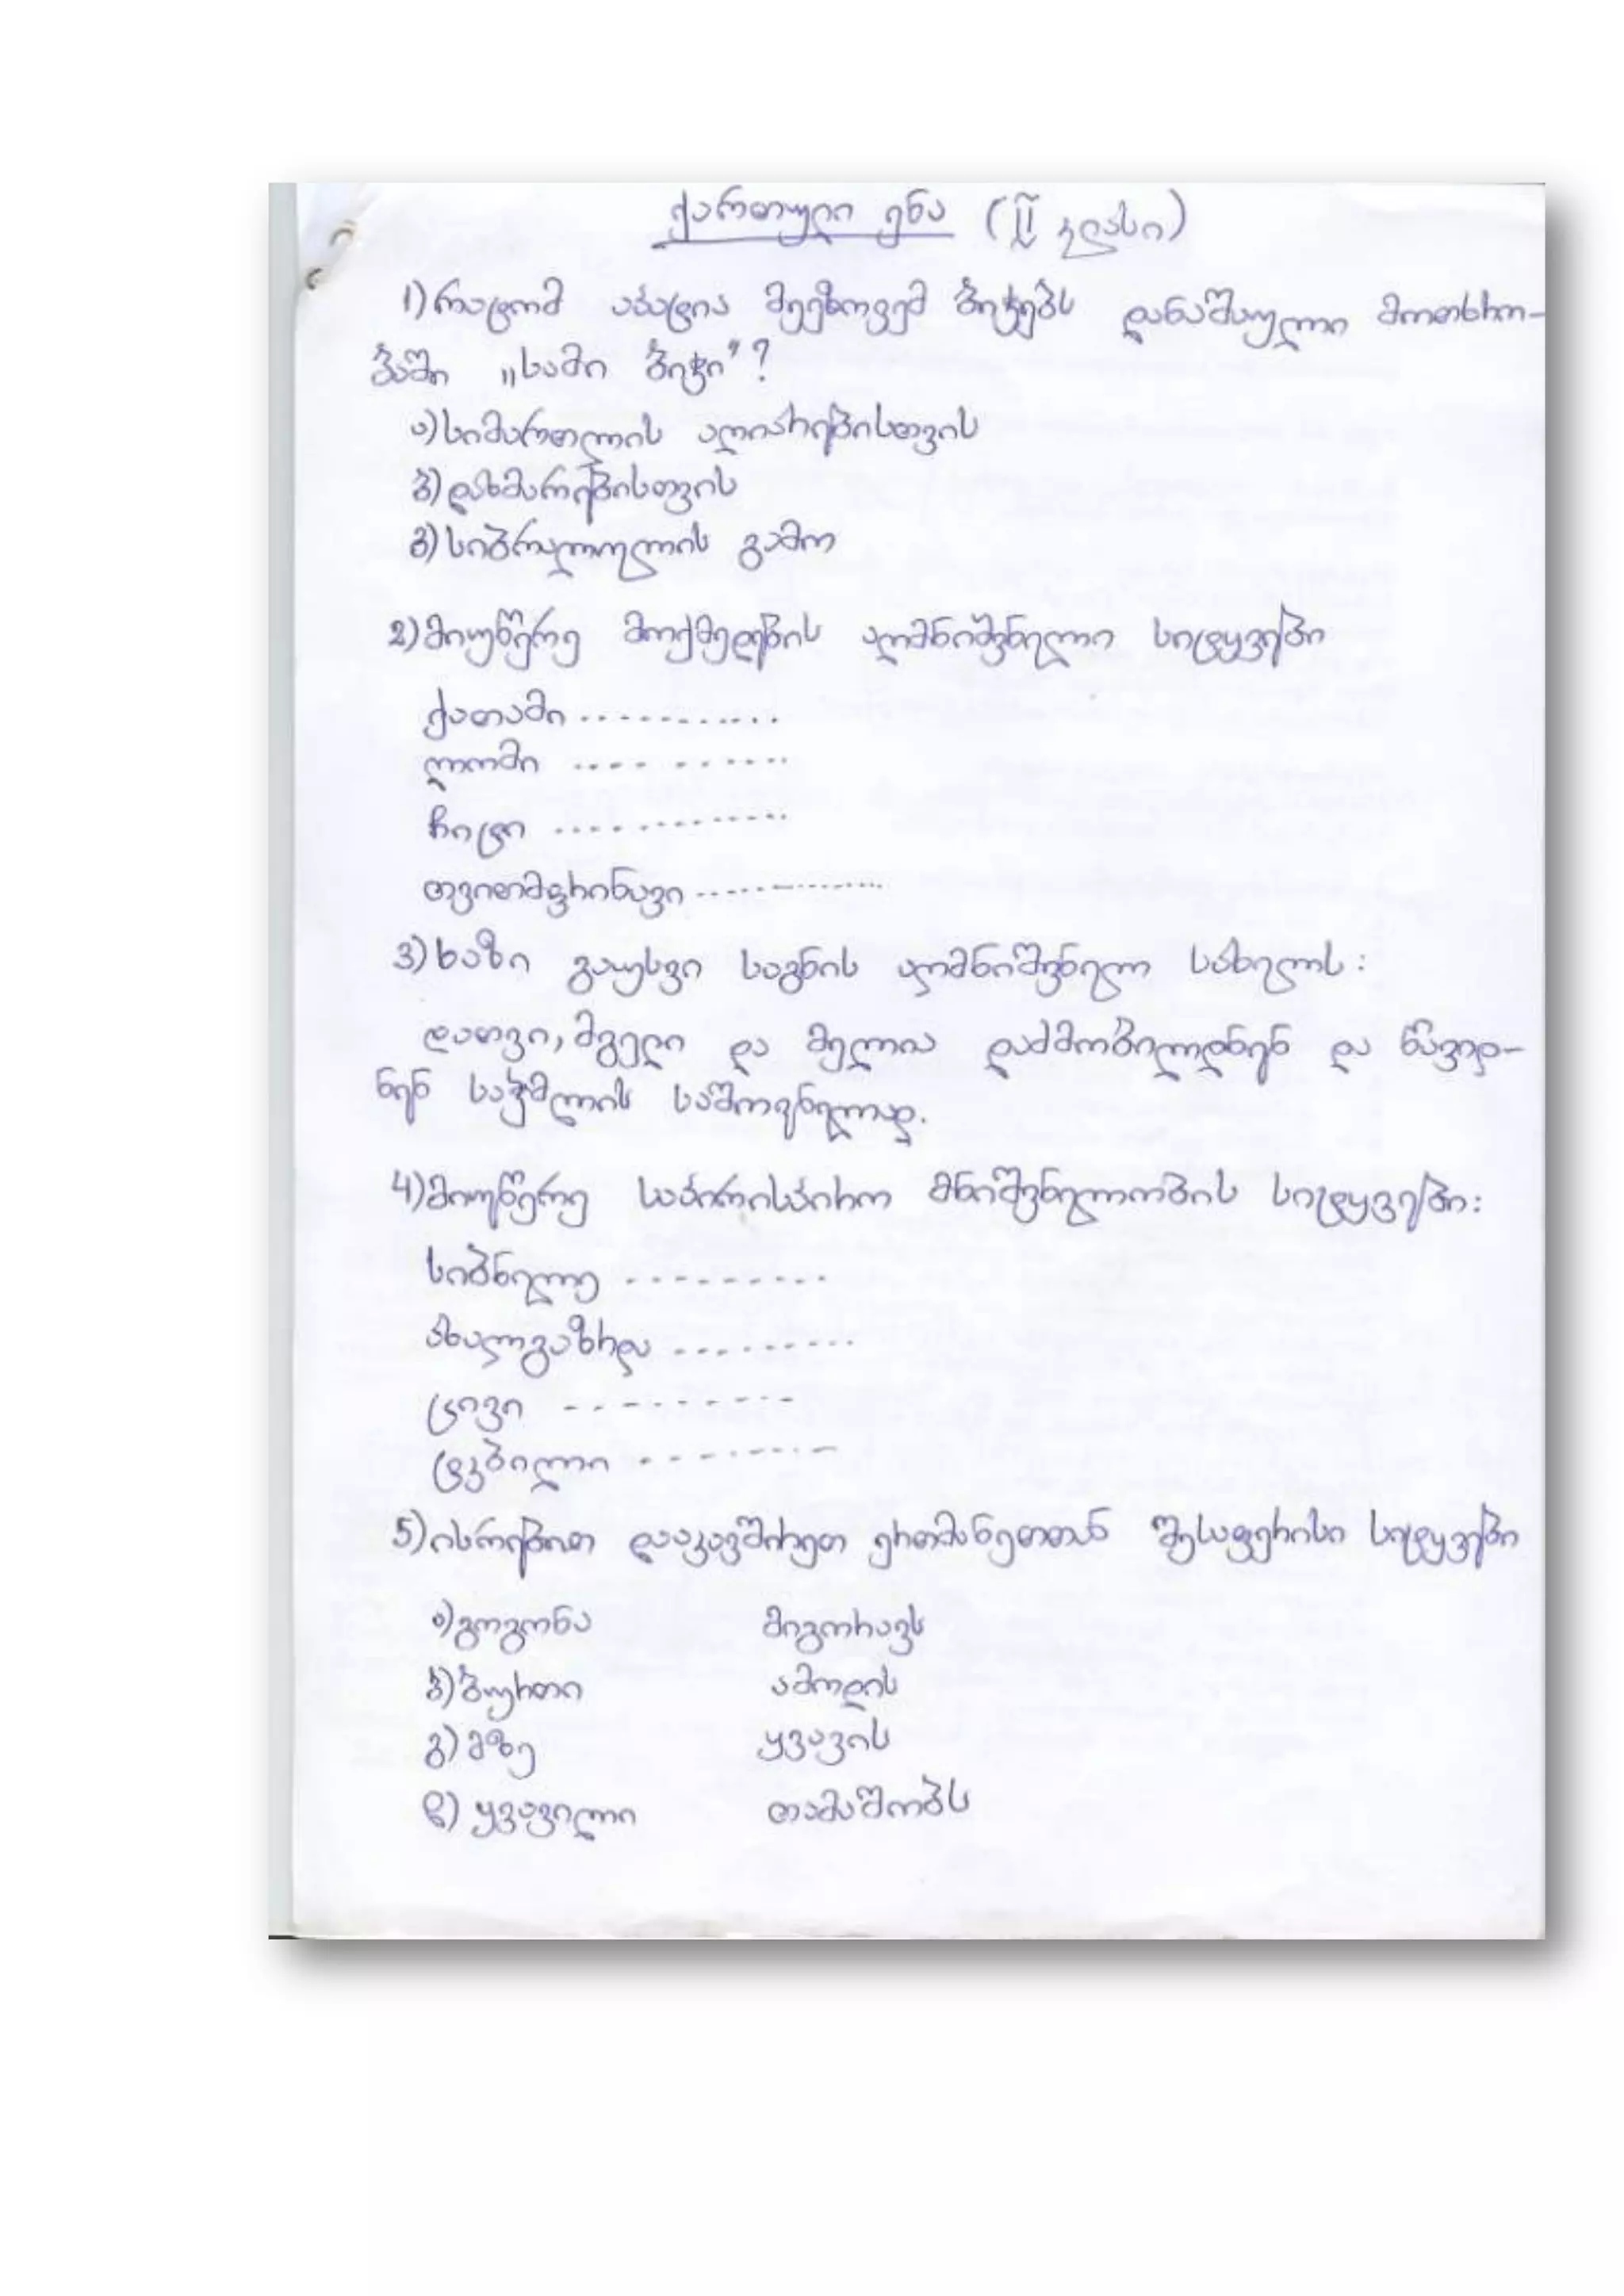 ქართული ენა (II კლასი)
1) რატომ აპატია მეეზოვემ ბიჭებს დანაშაული მოთხრო-
ბაში „სამი ბიჭი"?
ა) სიმართლის აღიარებისთვის
ბ) დახმარებისთვის
გ) სიბრალულის გამო
2) მიუწერე მოქმედების აღმნიშვნელი სიტყვები
ქათამი ...........
ლომი ...........
ჩიტი .............
თვითმფრინავი ..............
3) ხაზი გაუსვი საგნის აღმნიშვნელ სახელს:
დათვი, მგელი და მელია დაძმობილდნენ და წავიდ-
ნენ საჭმლის საშოვნელად.
4) მიუწერე საპირისპირო მნიშვნელობის სიტყვები:
სიბნელე .........
ახალგაზრდა .........
ცივი .........
ტკბილი .........
5) ისრებით დააკავშირეთ ერთმანეთთან შესაფერისი სიტყვები
ა) გოგონა მიგორავს
ბ) ბურთი ამოდის
გ) მზე ყვავის
დ) ყვავილი თამაშობს